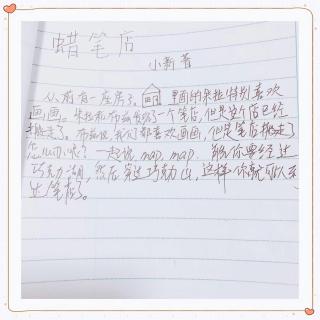 蜡笔店
小新著
从前有一座房子。里面的朵拉特别喜欢
画画。朵拉和布兹发现了一个笔店,但是这个店已经
搬走了。布兹说,我们都喜欢画画,但是笔店搬走了
怎么办呢?一起说,map,map.你要经过
巧克力湖,然后穿过巧克力山,这样你就可以去
笔店了。